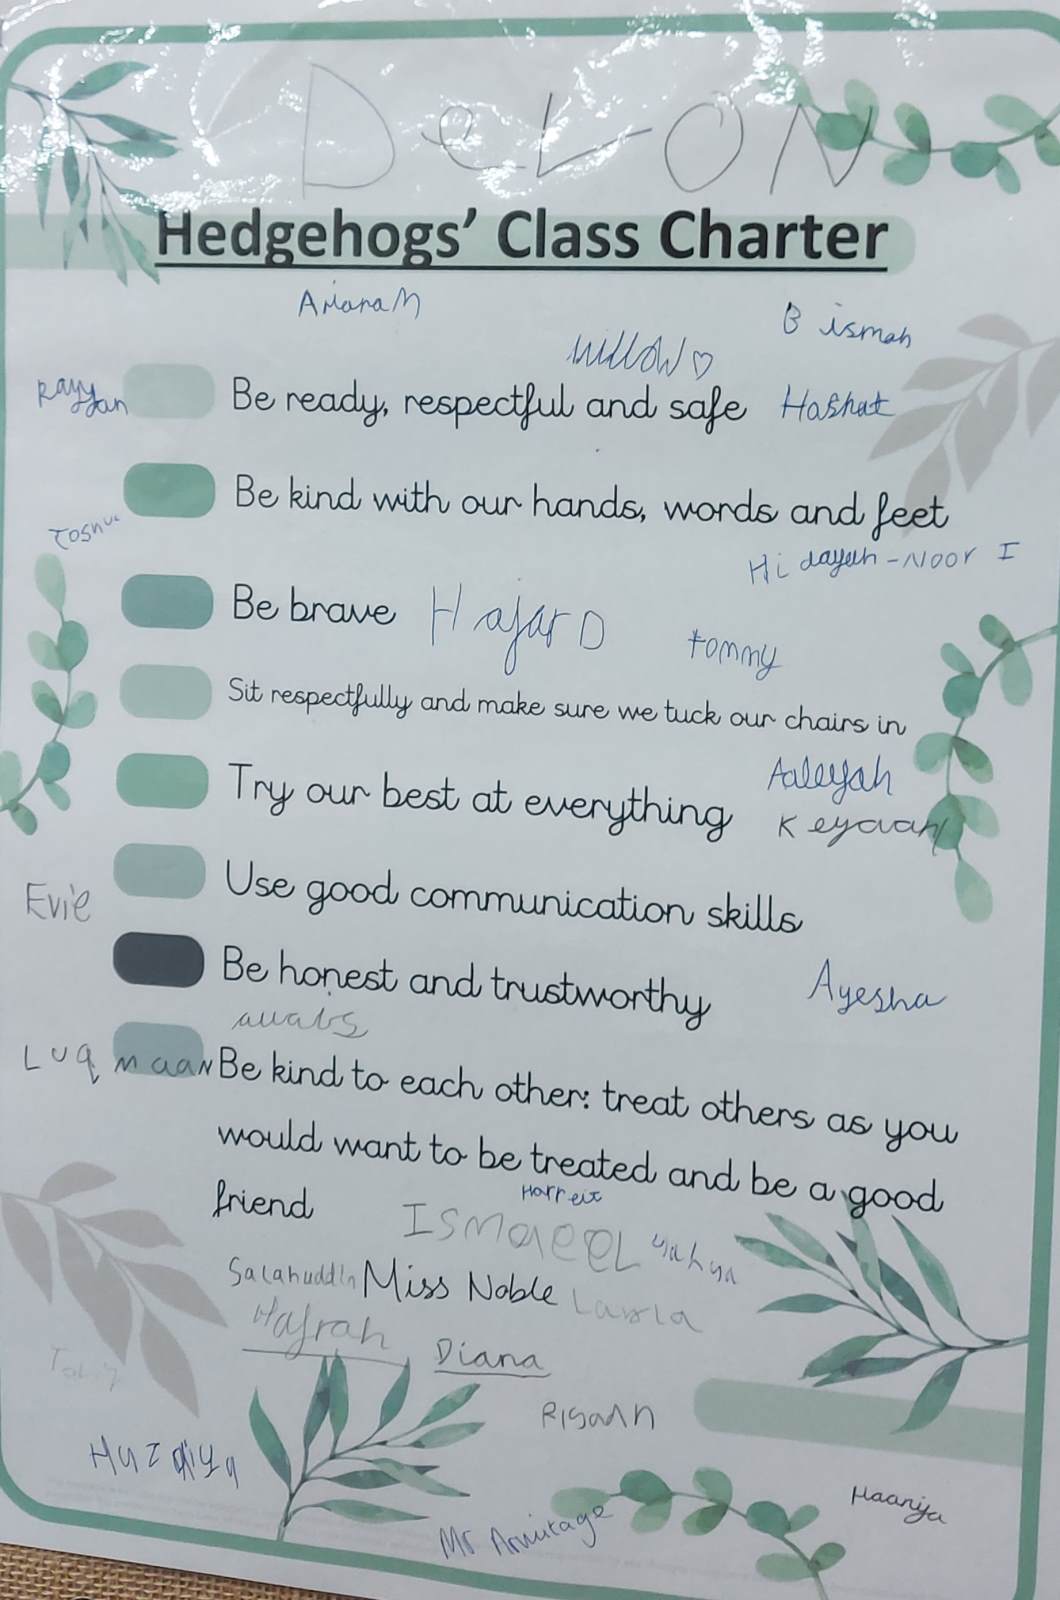 DeLON
Hedgehogs' Class Charter
Ariana M
B ismah
Willow ♡
Rayyan
Be ready, respectful and safe
Hashat
Be kind with our hands, words and feet
Joshua
Hidayah-Noor I
Be brave
Hajar D
tommy
Sit respectfully and make sure we tuck our chairs in
Aaleyah
Try our best at everything
Keyaan
Use good communication skills
Evie
Be honest and trustworthy
Ayesha
awabs
Luqmaan
Be kind to each other: treat others as you
would want to be treated and be a good
friend
Harreit
ISMaeeL
yahya
Salahuddin
Miss Noble
Layla
Hafrah
Diana
Risaan
Huzaiya
Haaniya
Mr Armitage